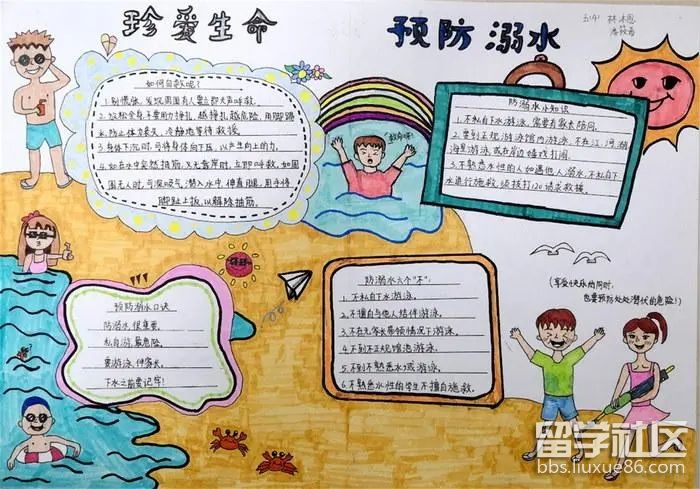 珍爱生命 预防溺水
五(4) 林沐恩
如何自救呢?
1.别慌张,发现周围有人要立即大声呼救。
2.放松全身不要用力挣扎,越挣扎越危险,用脚踢
水,防止体力丧失,冷静地等待救援。
3.身体下沉时,可将身体向下压,以产生向上的力。
4.如在水中突然抽筋,又无靠岸时,立即呼救,如周
围无人时,可深吸气,潜入水中,伸直腿,用手将
脚趾上扳,以解除抽筋。
救命呀!
防溺水小知识
1.不私自下水游泳,需要有家长陪同。
2.要到正规游泳馆内游泳,不在江、河、湖
海里游泳,或在岸边嬉戏打闹。
3.不熟悉水性的人如遇他人溺水,不私自下
水进行施救,须拨打120请求救援。
预防溺水口诀
防溺水,很重要,
私自游,最危险,
要游泳,伴家长,
下水之前要记牢!
防溺水六个"不":
1.不私自下水游泳。
2.不擅自与他人结伴游泳。
3.不在无家长带领情况下游泳。
4.不到不正规馆池游泳。
5.不到不熟悉水域游泳。
6.不熟悉水性的学生不擅自施救。
(享受快乐的同时,
也要预防处处潜伏的危险!)
留学社区
bbs.liuxue86.com